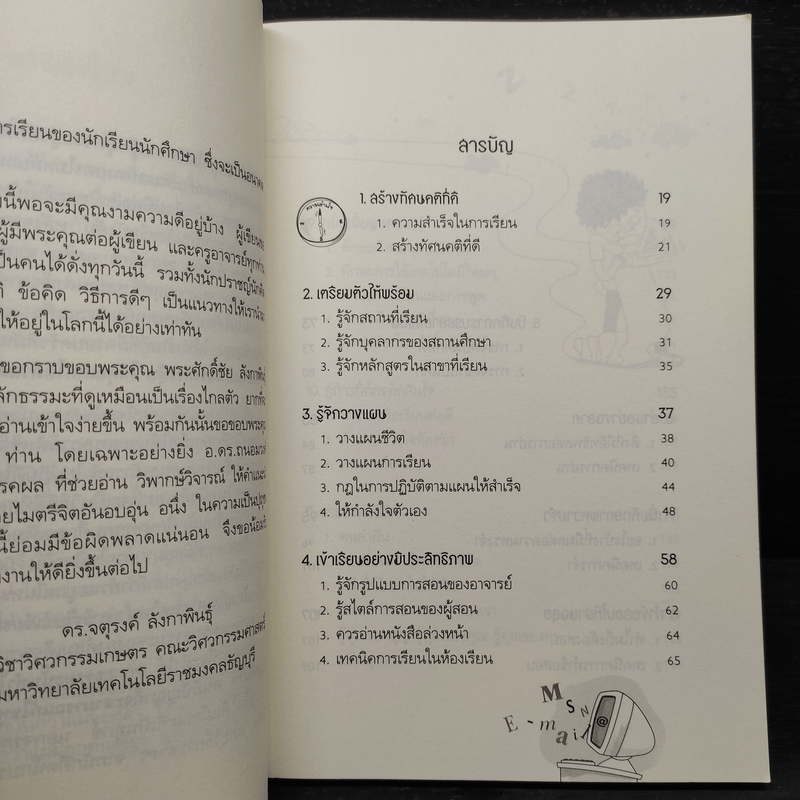 ารเรียนของนักเรียนนักศึกษา ซึ่งจะเป็นอนาคต
นี้พอจะมีคุณงามความดีอยู่บ้าง ผู้เขียนขอ
ผู้มีพระคุณต่อผู้เขียน และครูอาจารย์ทุกท่าน
ป็นคนได้ดั่งทุกวันนี้ รวมทั้งนักปราชญ์นักคิด
ข้อคิด วิธีการดีๆ เป็นแนวทางให้เรานำมา
ให้อยู่ในโลกนี้ได้อย่างเท่าทัน
ขอกราบขอบพระคุณ พระศักดิ์ชัย ลังกาพินธุ์
ลักธรรมะที่ดูเหมือนเป็นเรื่องไกลตัว ยากที่จะ
อ่านเข้าใจง่ายขึ้น พร้อมกันนั้นขอขอบพระคุณ
ท่าน โดยเฉพาะอย่างยิ่ง อ.ดร.ถนอมวรร
รคผล ที่ช่วยอ่าน วิพากษ์วิจารณ์ ให้คำแนะนำ
ยไมตรีจิตอันอบอุ่น อนึ่ง ในความเป็นปุถุช
นี้ย่อมมีข้อผิดพลาดแน่นอน จึงขอน้อมรับ
งานให้ดียิ่งขึ้นต่อไป
ดร.จตุรงค์ ลังกาพินธุ์
วิชาวิศวกรรมเกษตร คณะวิศวกรรมศาสตร์
มหาวิทยาลัยเทคโนโลยีราชมงคลธัญบุรี
สารบัญ
1. สร้างทัศนคติที่ดี 19
1. ความสำเร็จในการเรียน 19
2. สร้างทัศนคติที่ดี 21
2. เตรียมตัวให้พร้อม 29
1. รู้จักสถานที่เรียน 30
2. รู้จักบุคลากรของสถานศึกษา 31
3. รู้จักหลักสูตรในสาขาที่เรียน 35
3. รู้จักวางแผน 37
1. วางแผนชีวิต 38
2. วางแผนการเรียน 40
3. กฎในการปฏิบัติตามแผนให้สำเร็จ 44
4. ให้กำลังใจตัวเอง 48
4. เข้าเรียนอย่างมีประสิทธิภาพ 58
1. รู้จักรูปแบบการสอนของอาจารย์ 60
2. รู้สไตล์การสอนของผู้สอน 62
3. ควรอ่านหนังสือล่วงหน้า 64
4. เทคนิคการเรียนในห้องเรียน 65
MSN
E-mail
@